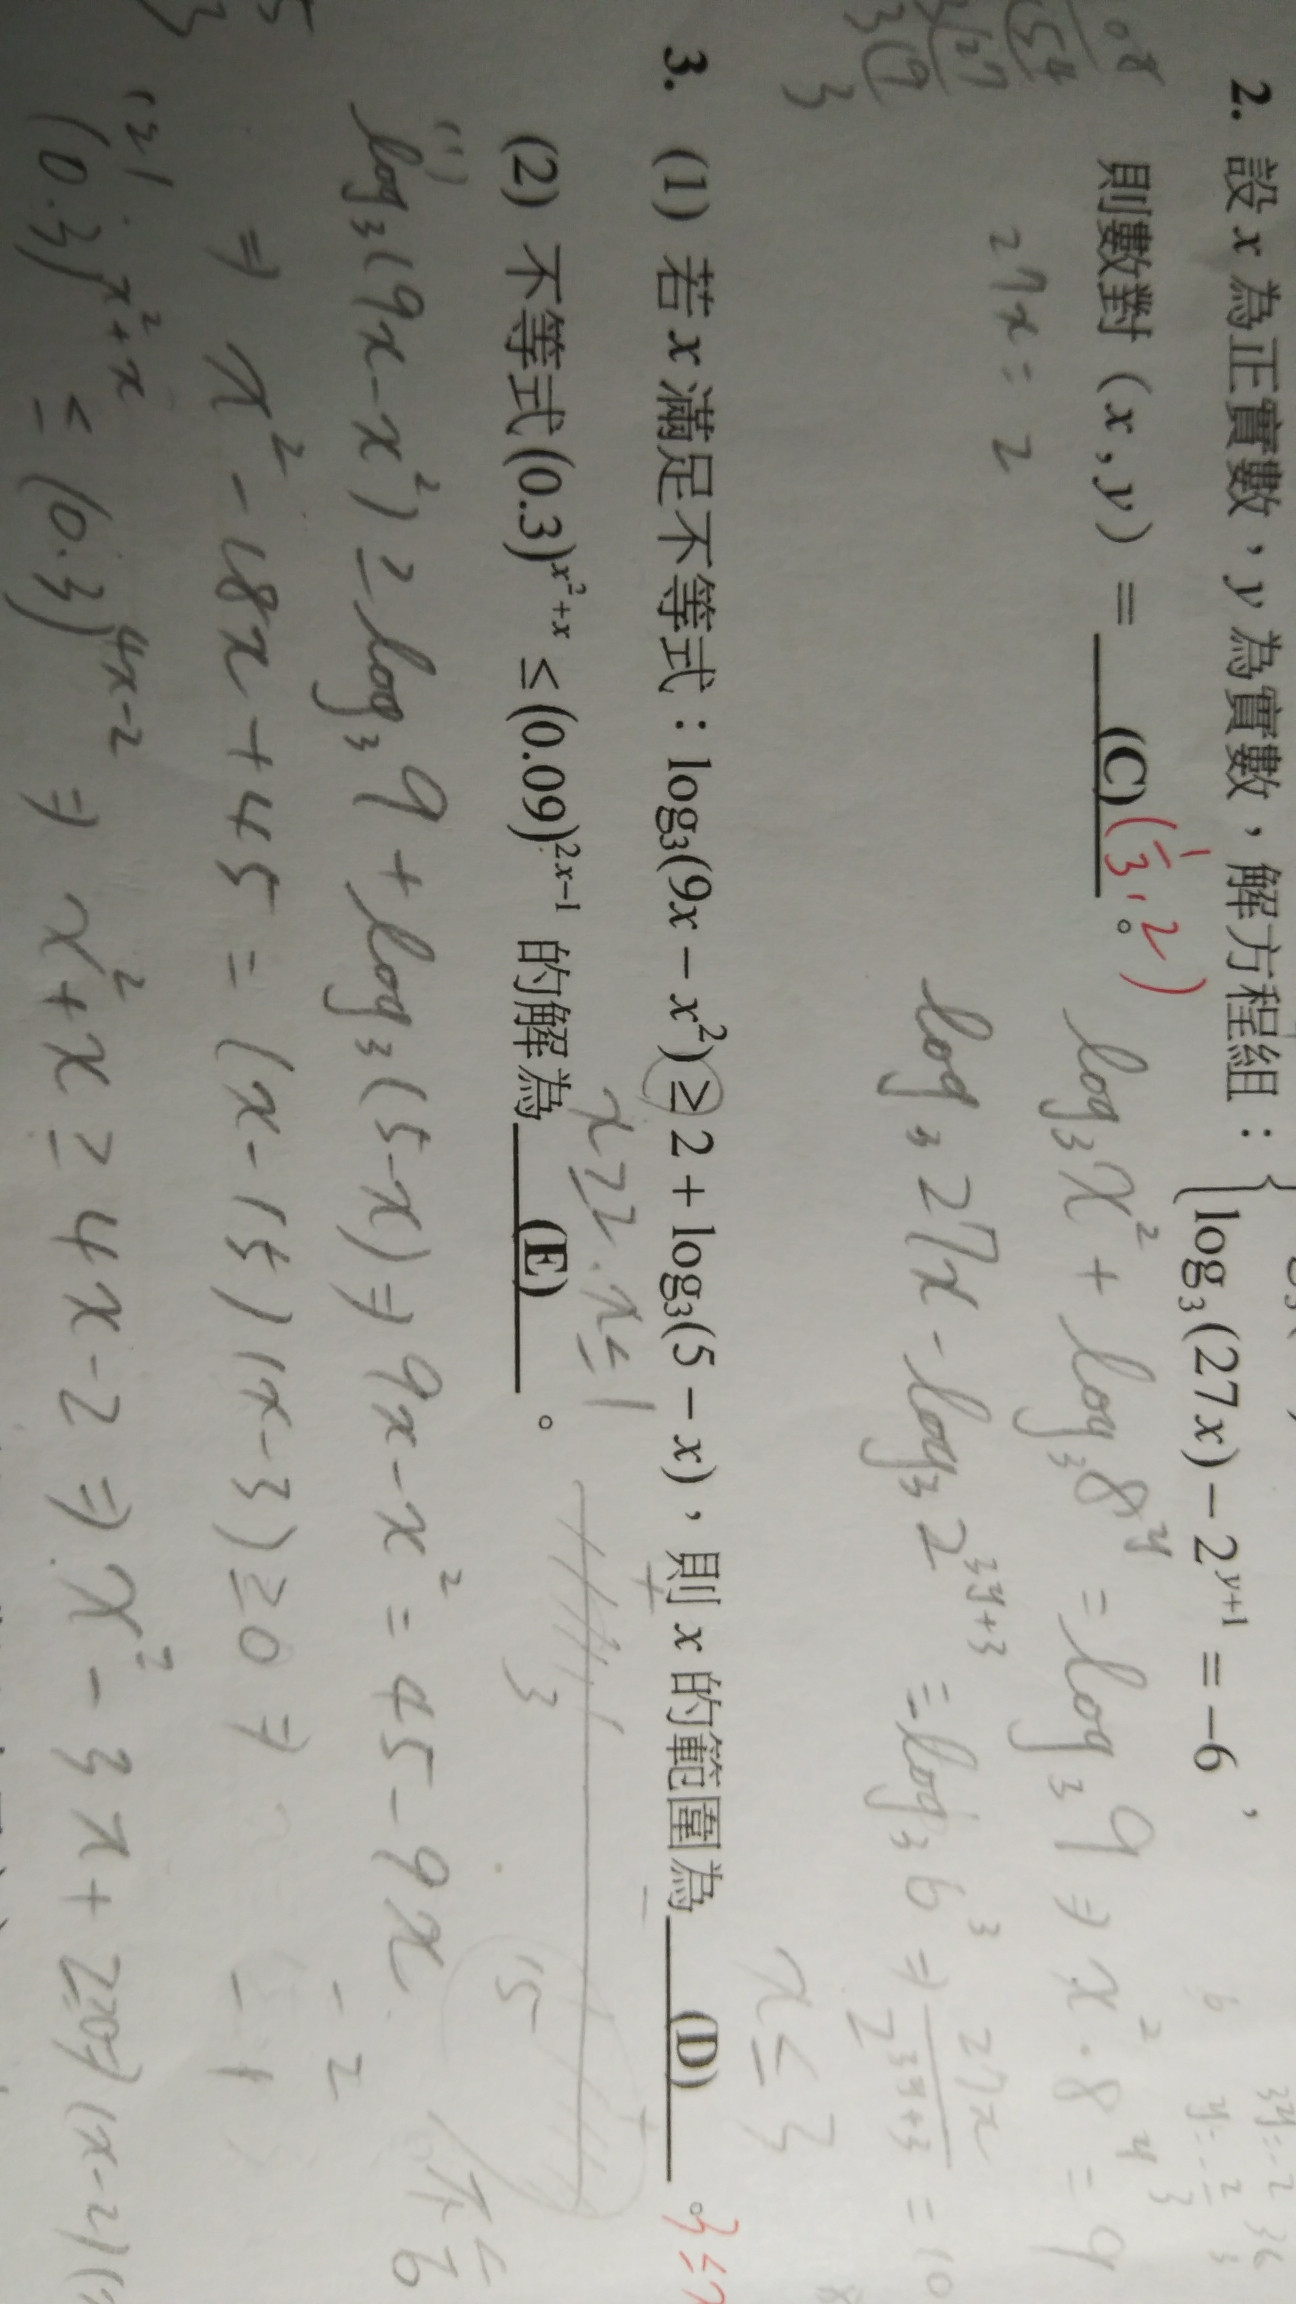 2. 設 x 為正實數，y 為實數，解方程組：{ log₃(27x) − 2^{y+1} = −6，
則數對 (x, y) = (C) 。
(1/3, 2)
log₃x² + log₃8^y = log₃9 ⇒ x²·8^y = 9
27x = 2
log₃27x − log₃2^{3y+3} = log₃6³ ⇒ 27x/2^{3y+3} = 10
3. (1) 若 x 滿足不等式：log₃(9x − x²) ≥ 2 + log₃(5 − x)，則 x 的範圍為 (D) 。
x ≤ 3
x ≥ 2 . x ≤ 1
(2) 不等式 (0.3)^{x²+x} ≤ (0.09)^{2x−1} 的解為 (E) 。
3
15
(1)
log₃(9x − x²) ≥ log₃9 + log₃(5−x) ⇒ 9x − x² = 45 − 9x
⇒ x² − 18x + 45 = (x−15)(x−3) ≥ 0 ⇒
(2)
(0.3)^{x²+x} ≤ (0.3)^{4x−2} ⇒ x² + x ≥ 4x − 2 ⇒ x² − 3x + 2 ≥ 0 ⇒ (x−2)(